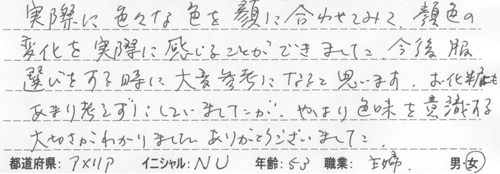 実際に色々な色を顔に合わせてみて、顔色の
変化を実際に感じることができました。今後服
選びをする時に大変参考になると思います。お化粧も
あまり考えずにしていましたが、やはり色味を意識する
大切さがわかりました。ありがとうございました。
都道府県: アメリア イニシャル: NU 年齢: 53 職業: 主婦 男・女